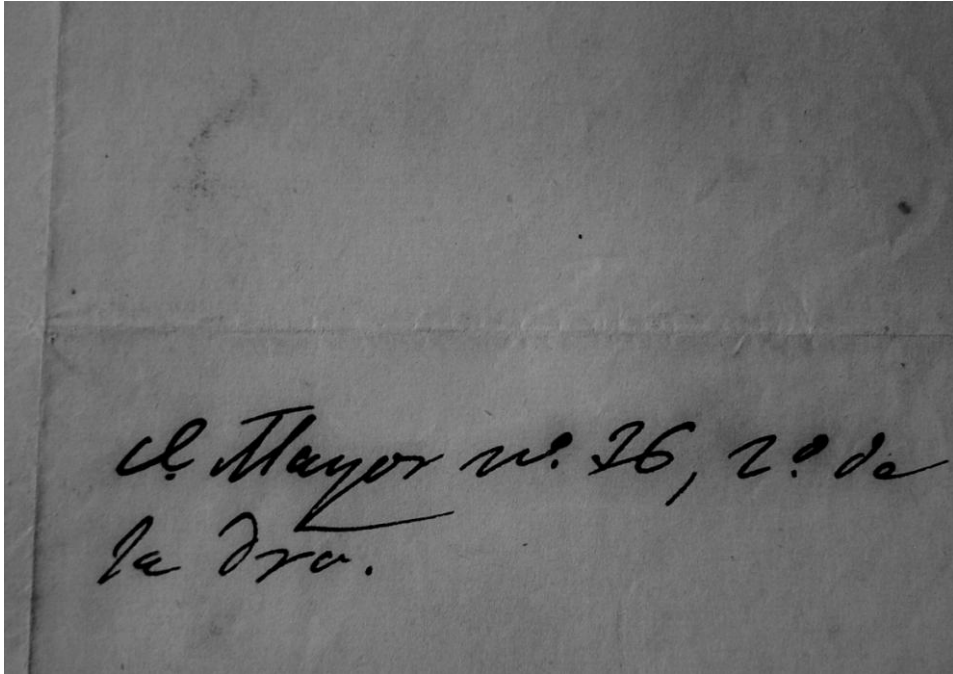 C. Mayor nº. 76, 2º. de
la dra.